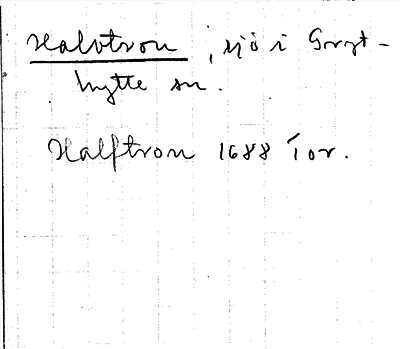 Halvtron, sjö i Gryt-
hytte sn.
Halftron 1688 Tor.